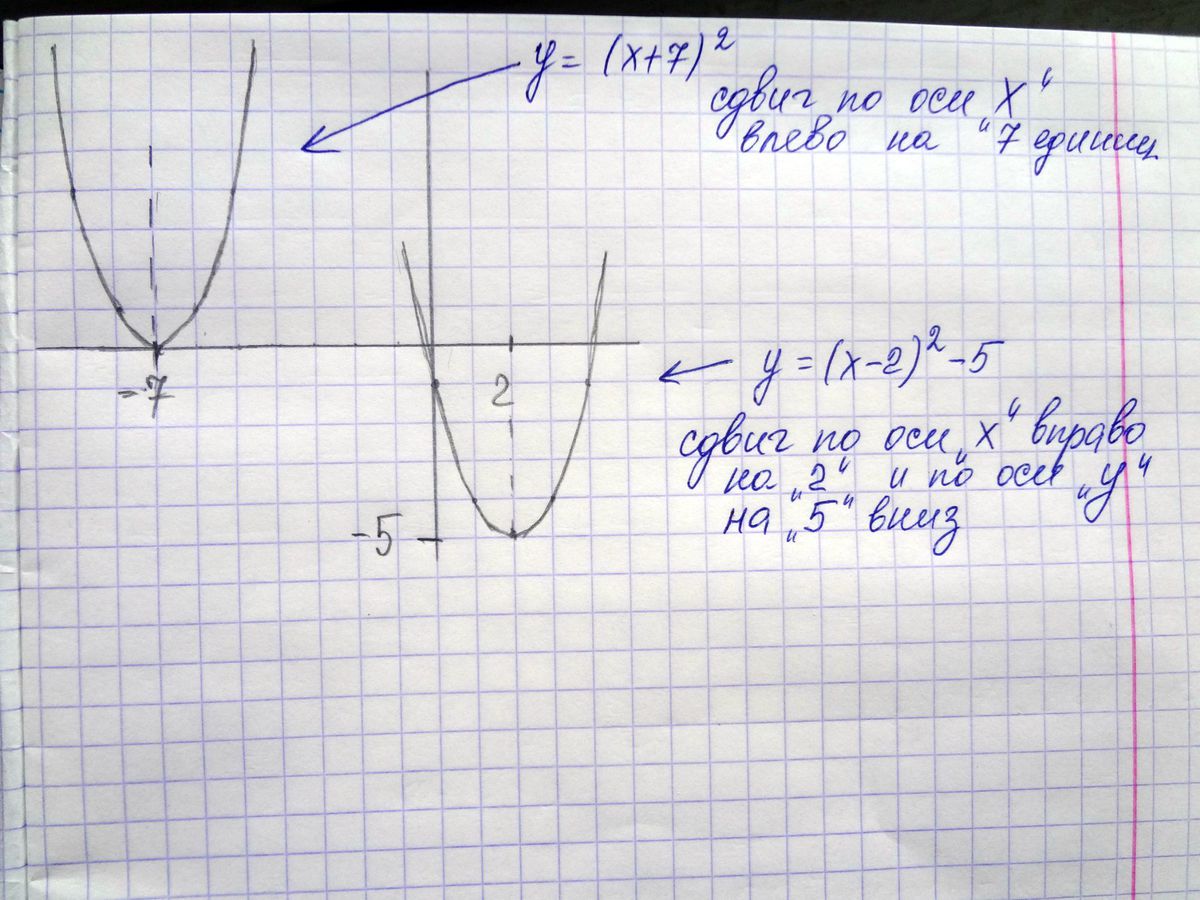 y = (x+7)²
сдвиг по оси „X“
влево на "7 единиц
-7
2
-5
y = (x-2)² -5
сдвиг по оси „x“ вправо
на „2“ и по оси „y“
на „5“ вниз